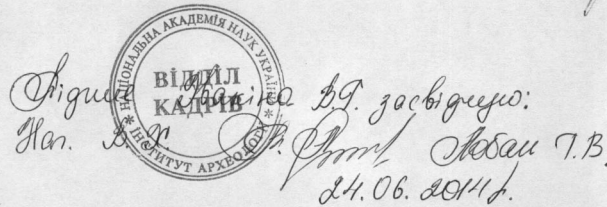 НАЦІОНАЛЬНА АКАДЕМІЯ НАУК УКРАЇНИ
ІНСТИТУТ АРХЕОЛОГІЇ
ВІДДІЛ
КАДРІВ
Підпис В.Г. засвідчую:
Нач. В. К. Лобан Т.В.
24.06.2014 р.